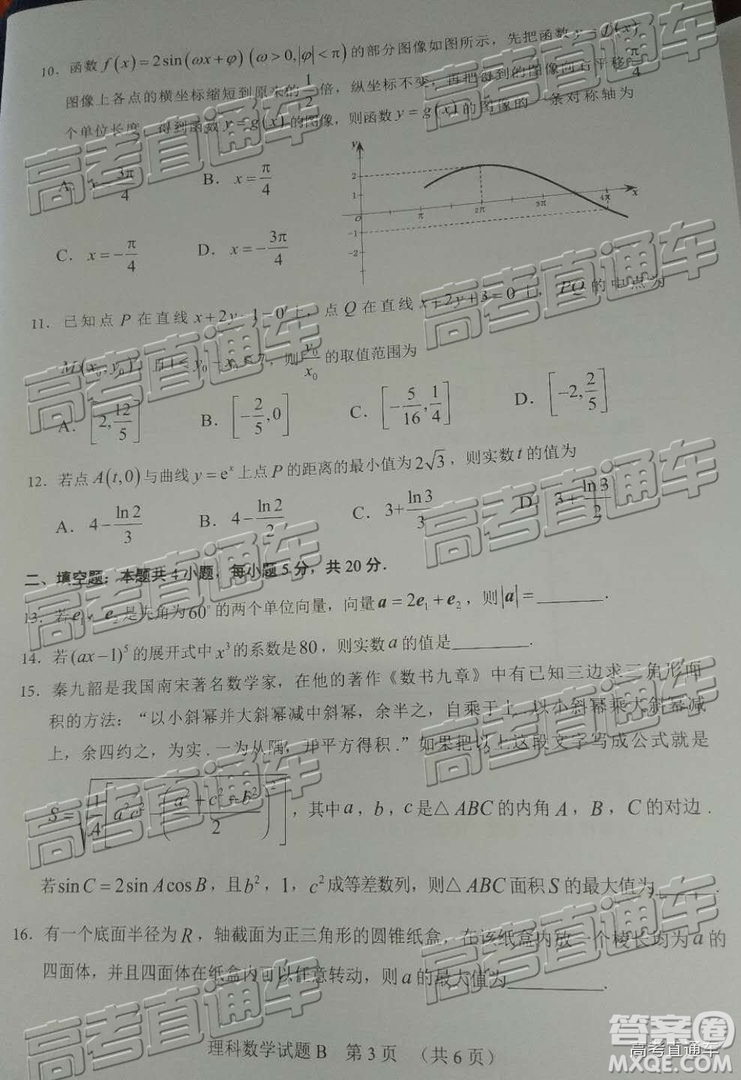 10．函数 f(x)=2sin(ωx+φ)(ω>0,|φ|<π)的部分图像如图所示，先把函数 y=f(x)
图像上各点的横坐标缩短到原来的 1/2 倍，纵坐标不变，再把得到的图像向右平移 π/4
个单位长度，得到函数 y=g(x)的图像，则函数 y=g(x)的图像的一条对称轴为
A．x=3π/4 B．x=π/4
C．x=-π/4 D．x=-3π/4
y 2 1 0 -1 -2 π 2π 3π 4π x
11．已知点 P 在直线 x+2y-1=0 上，点 Q 在直线 x+2y+3=0 上，PQ 的中点为
M(x₀,y₀)，且1≤y₀-x₀≤7，则 y₀/x₀ 的取值范围为
A．[2,12/5] B．[-2/5,0] C．[-5/16,1/4] D．[-2,2/5]
12．若点 A(t,0)与曲线 y=eˣ上点 P 的距离的最小值为 2√3，则实数 t 的值为
A．4-ln2/3 B．4-ln2/2 C．3+ln3/3 D．3+ln3/2
二、填空题：本题共 4 小题，每小题 5 分，共 20 分．
13．若 e₁，e₂ 是夹角为60°的两个单位向量，向量 a=2e₁+e₂，则|a|=______．
14．若(ax-1)⁵的展开式中 x³的系数是80，则实数 a 的值是______．
15．秦九韶是我国南宋著名数学家，在他的著作《数书九章》中有已知三边求三角形面
积的方法：“以小斜幂并大斜幂减中斜幂，余半之，自乘于上，以小斜幂乘大斜幂减
上，余四约之，为实．一为从隅，开平方得积．”如果把以上这段文字写成公式就是
S=√(1/4[a²c²-((a²+c²-b²)/2)²])，其中 a，b，c 是△ABC 的内角 A，B，C 的对边．
若 sinC=2sinAcosB，且 b²，1，c²成等差数列，则△ABC 面积 S 的最大值为______．
16．有一个底面半径为 R，轴截面为正三角形的圆锥纸盒，在该纸盒内放一个棱长均为 a 的
四面体，并且四面体在纸盒内可以任意转动，则 a 的最大值为______．
理科数学试题 B 第 3 页 （共 6 页）
高考直通车
高考直通车
高考直通车
高考直通车
高考直通车
高考直通车
高考直通车
高考直通车
高考直通车
高考直通车
答案圈
高考直通车
MXQE.COM